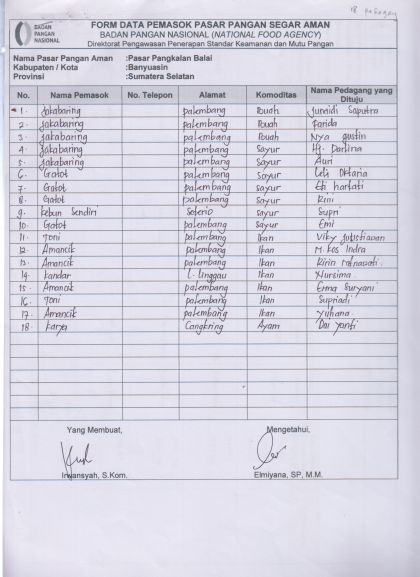 18 pedagang
BADAN PANGAN NASIONAL
FORM DATA PEMASOK PASAR PANGAN SEGAR AMAN
BADAN PANGAN NASIONAL (NATIONAL FOOD AGENCY)
Direktorat Pengawasan Penerapan Standar Keamanan dan Mutu Pangan
Nama Pasar Pangan Aman : Pasar Pangkalan Balai
Kabupaten / Kota : Banyuasin
Provinsi : Sumatera Selatan
No. Nama Pemasok No. Telepon Alamat Komoditas Nama Pedagang yang Dituju
1. Jakabaring palembang Buah Junaidi Saputra
2. Jakabaring palembang Buah Farida
3. Jakabaring palembang Buah Nya gustin
4. Jakabaring palembang Sayur Hj. Darlina
5. Jakabaring palembang Sayur Auri
6. Gatot palembang Sayur Leli Oktaria
7. Gatot palembang Sayur Eti hartati
8. Gatot palembang Sayur Rini
9. Kebun Sendiri Seterio Sayur Supri
10. Gatot palembang Sayur Emi
11. Toni palembang Ikan Viky
12. Amancik palembang Ikan M. Kos Indra
13. Amancik palembang Ikan Ririn
14. Kandar L. Linggau Ikan Nursima
15. Amancik palembang Ikan Erna Suryani
16. Toni palembang Ikan Supriadi
17. Amancik palembang Ikan Yuhana
18. Karya Cangkring Ayam Dar yanti
Yang Membuat, Mengetahui,
Irwansyah, S.Kom. Elmiyana, SP, M.M.